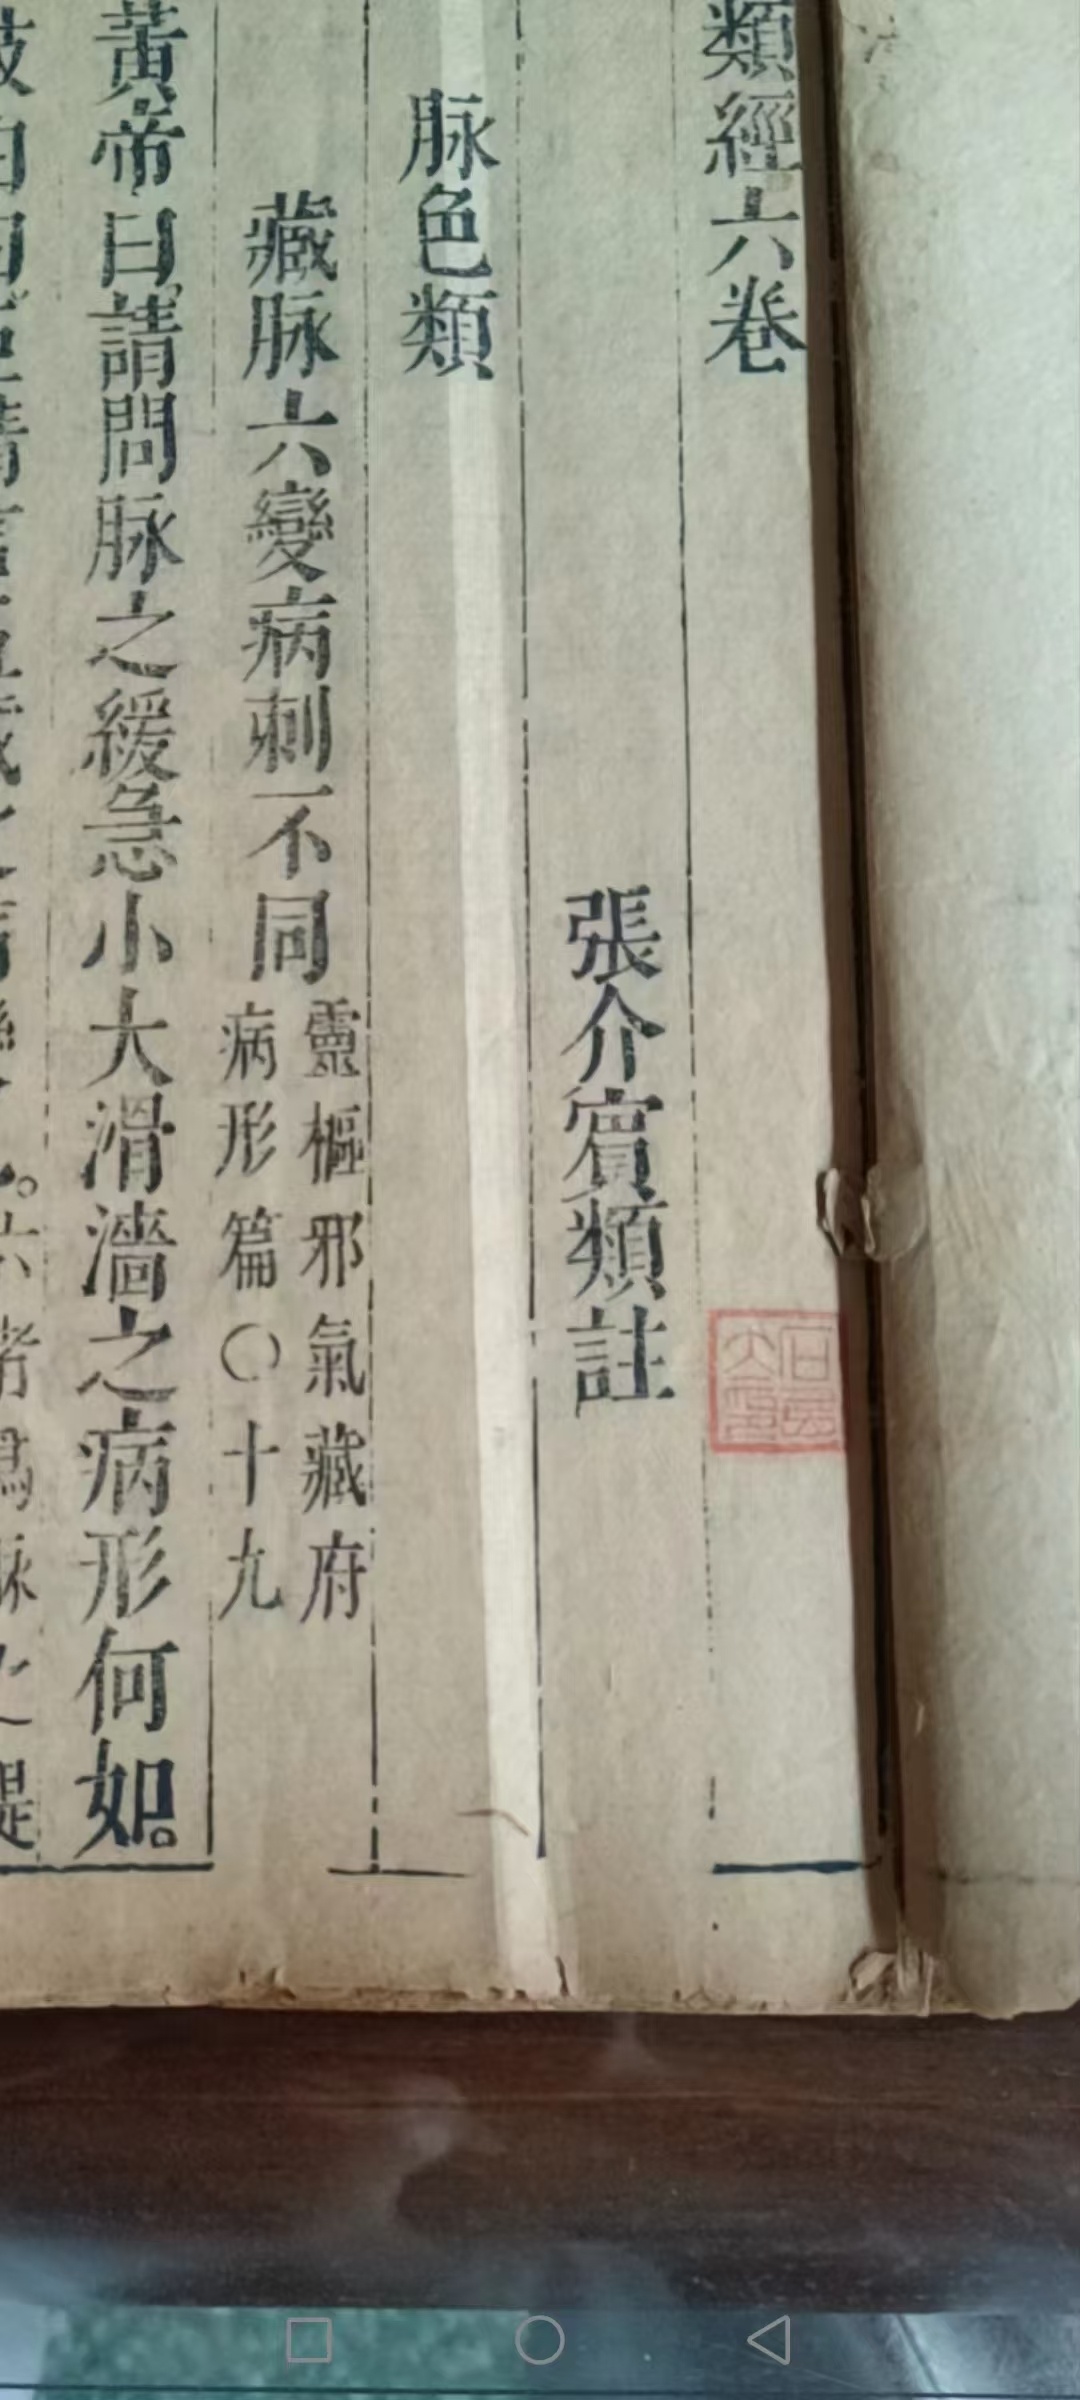 類經六卷
張介賓類註
脉色類
藏脉六變病刺不同
靈樞邪氣藏府
病形篇○十九
黃帝曰請問脉之緩急小大滑濇之病形何如。
六者爲脉之提